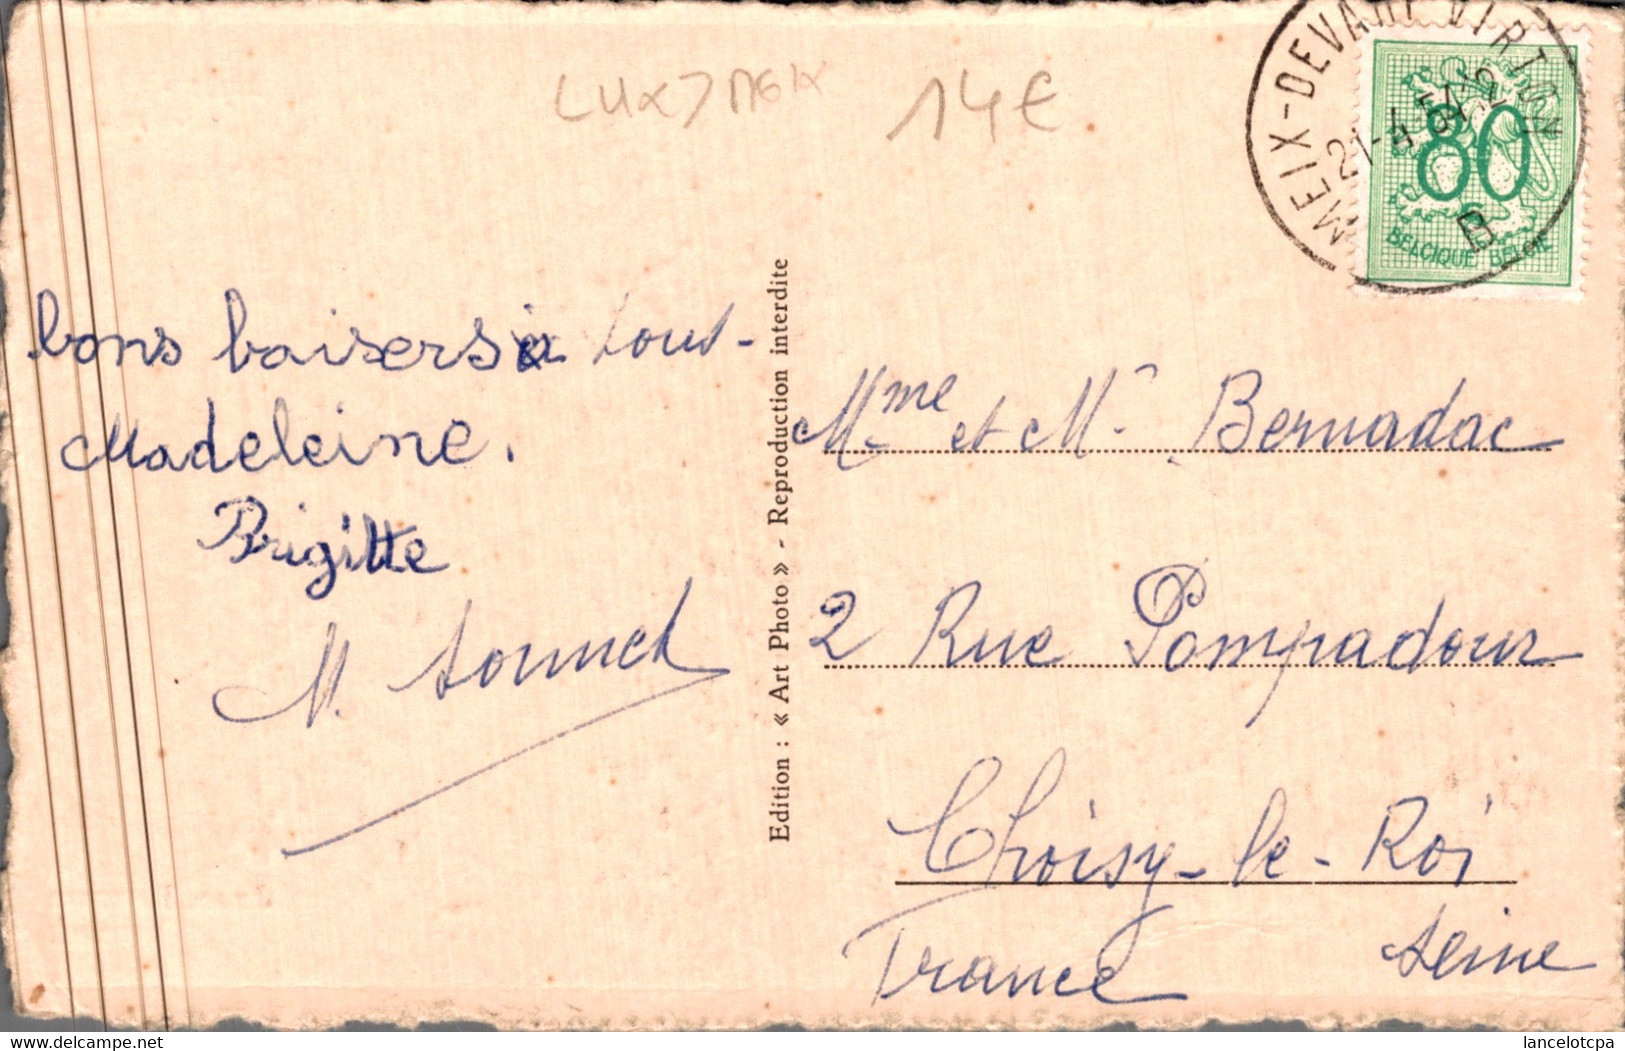 14€
MEIX-DEVANT-VIRTON
21-4-54
B
80
BELGIQUE BELGIË
bons baisers à tous-
Madeleine.
Brigitte
M.
Edition : « Art Photo » - Reproduction interdite
Mme et Mr Bernadac
2 Rue Pompadour
Choisy-le-Roi
Seine
France
lancelotcpa